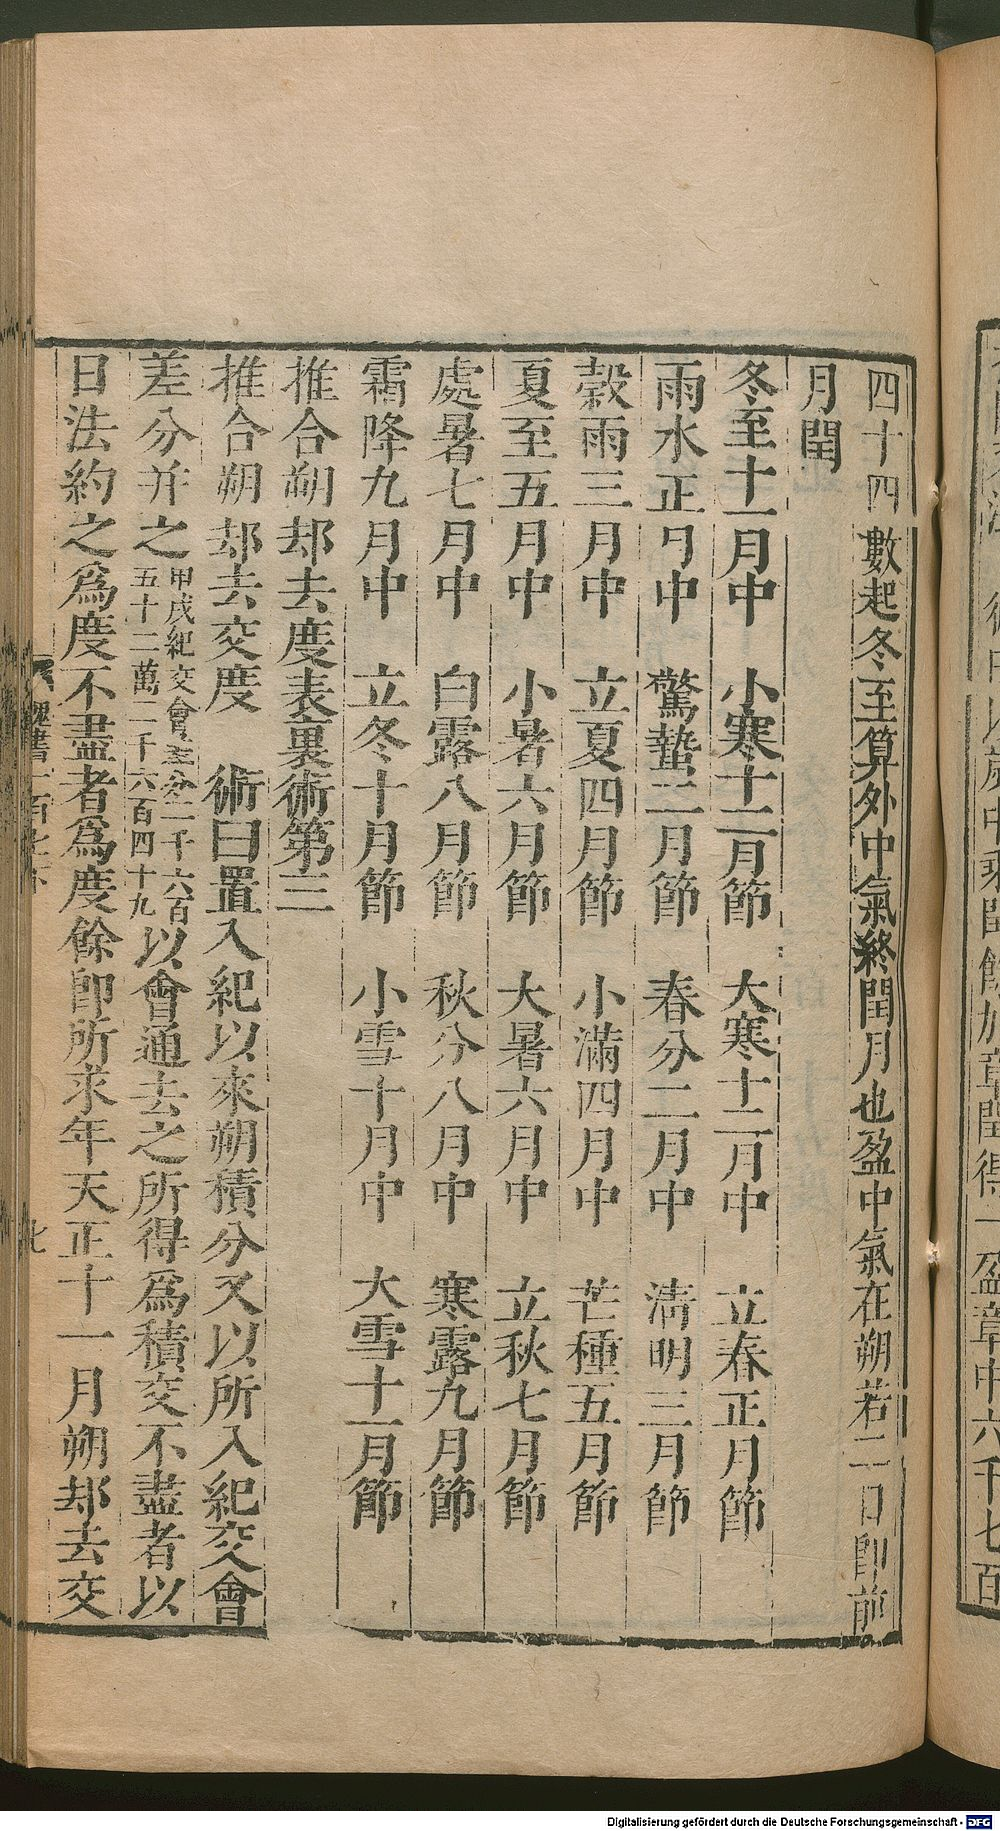 四十四數起冬至算外中氣終閏月也盈中氣在朔若二日卽前
月閏
冬至十一月中　小寒十二月節　大寒十二月中　立春正月節
雨水正月中　驚蟄二月節　春分二月中　淸明三月節
穀雨三月中　立夏四月節　小滿四月中　芒種五月節
夏至五月中　小暑六月節　大暑六月中　立秋七月節
處暑七月中　白露八月節　秋分八月中　寒露九月節
霜降九月中　立冬十月節　小雪十月中　大雪十一月節
推合朔却去度表裏術第三
推合朔却去交度　術曰置入紀以來朔積分又以所入紀交會
差分并之甲戌紀交會差分二千六百五十二萬二千六百四十九以會通去之所得爲積交不盡者以
日法約之爲度不盡者爲度餘卽所求年天正十一月朔却去交
魏書一百七下
七
Digitalisierung gefördert durch die Deutsche Forschungsgemeinschaft - DFG